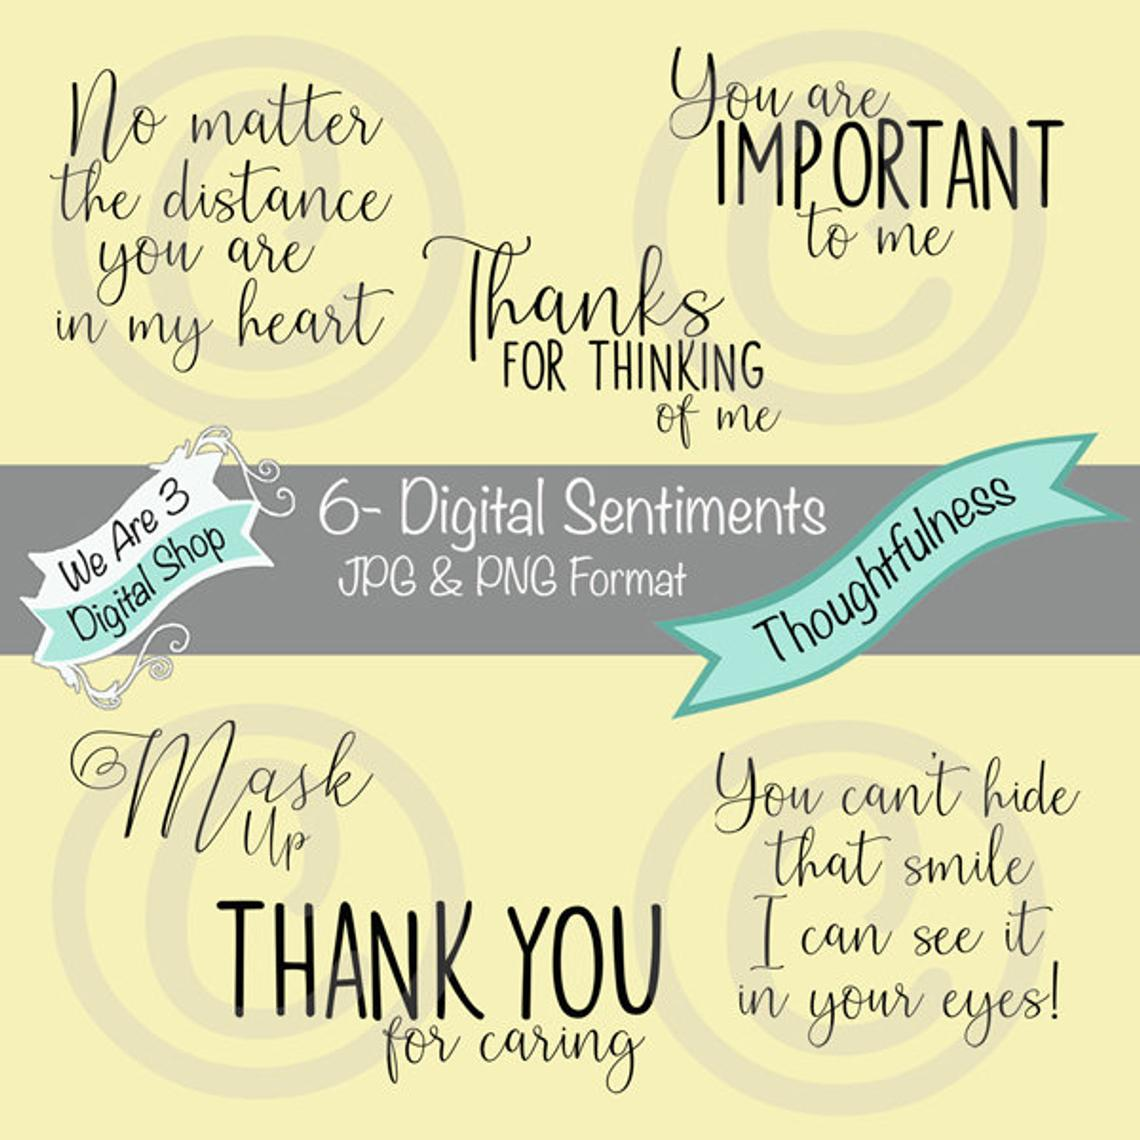 No matter
the distance
you are
in my heart
You are
IMPORTANT
to me
Thanks
FOR THINKING
of me
We Are 3
Digital Shop
6- Digital Sentiments
JPG & PNG Format
Thoughtfulness
Mask
Up
THANK YOU
for caring
You can't hide
that smile
I can see it
in your eyes!